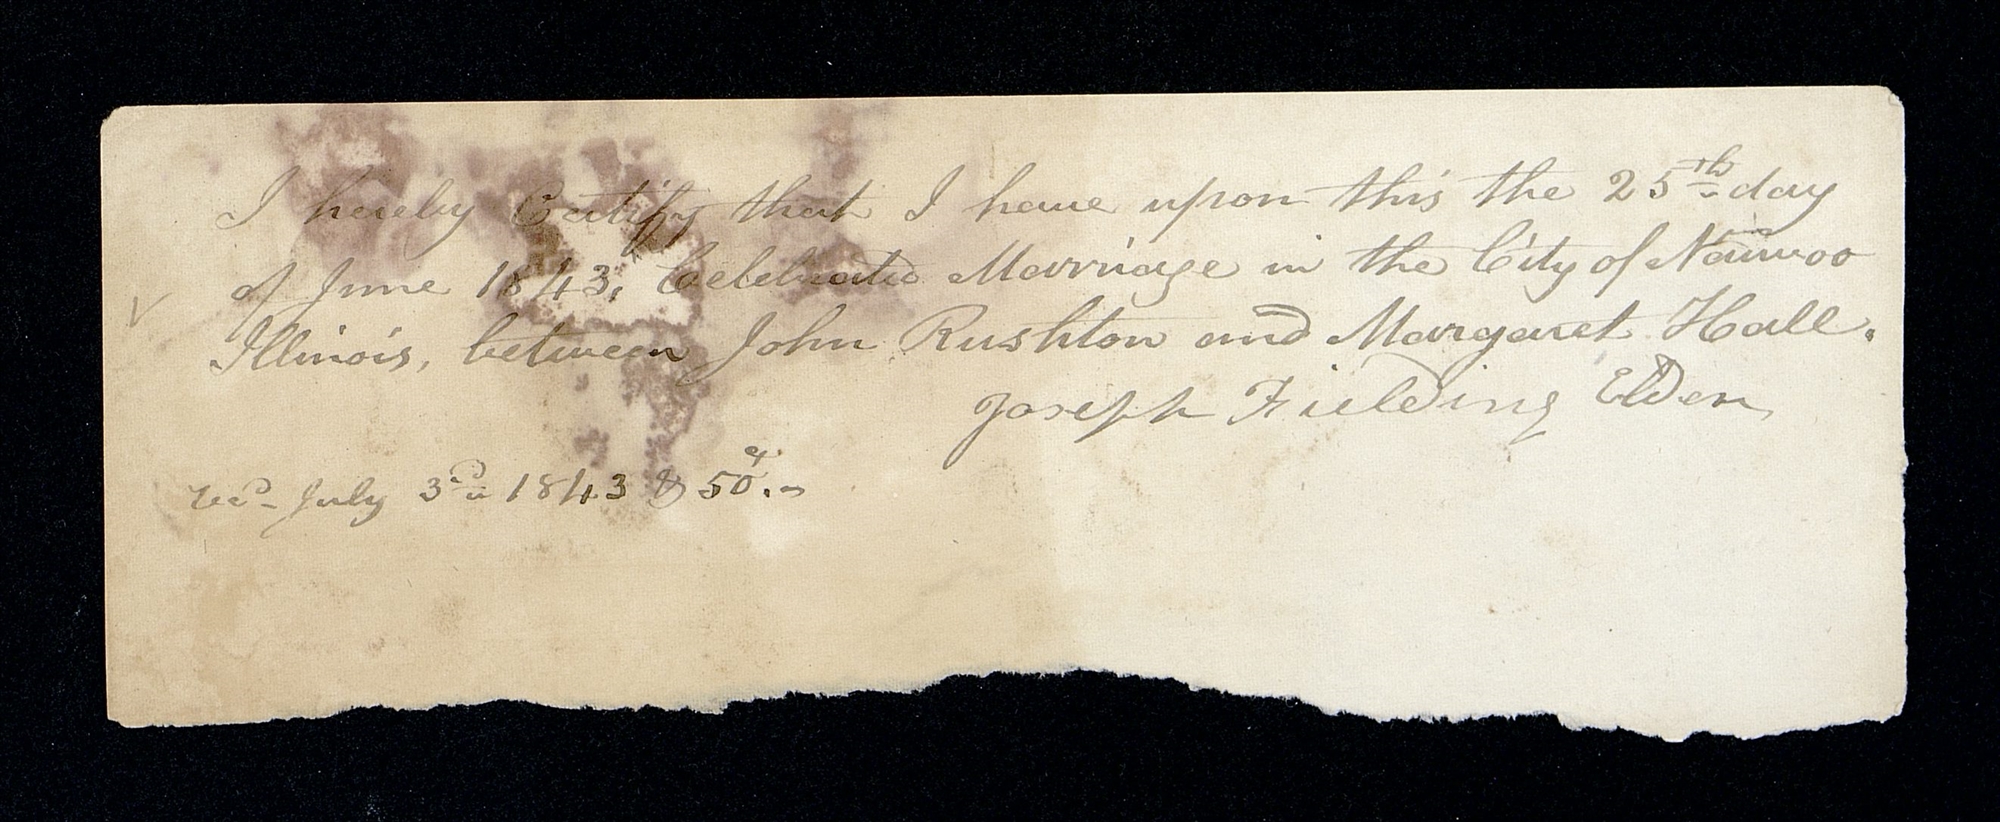 I hereby Certify that I have upon this the 25th day
of June 1843, Celebrated Marriage in the City of Nauvoo
Illinois, between John Rushton and Margaret Hall.
Joseph Fielding Elder
recd July 3d 1843 & 50 cts.